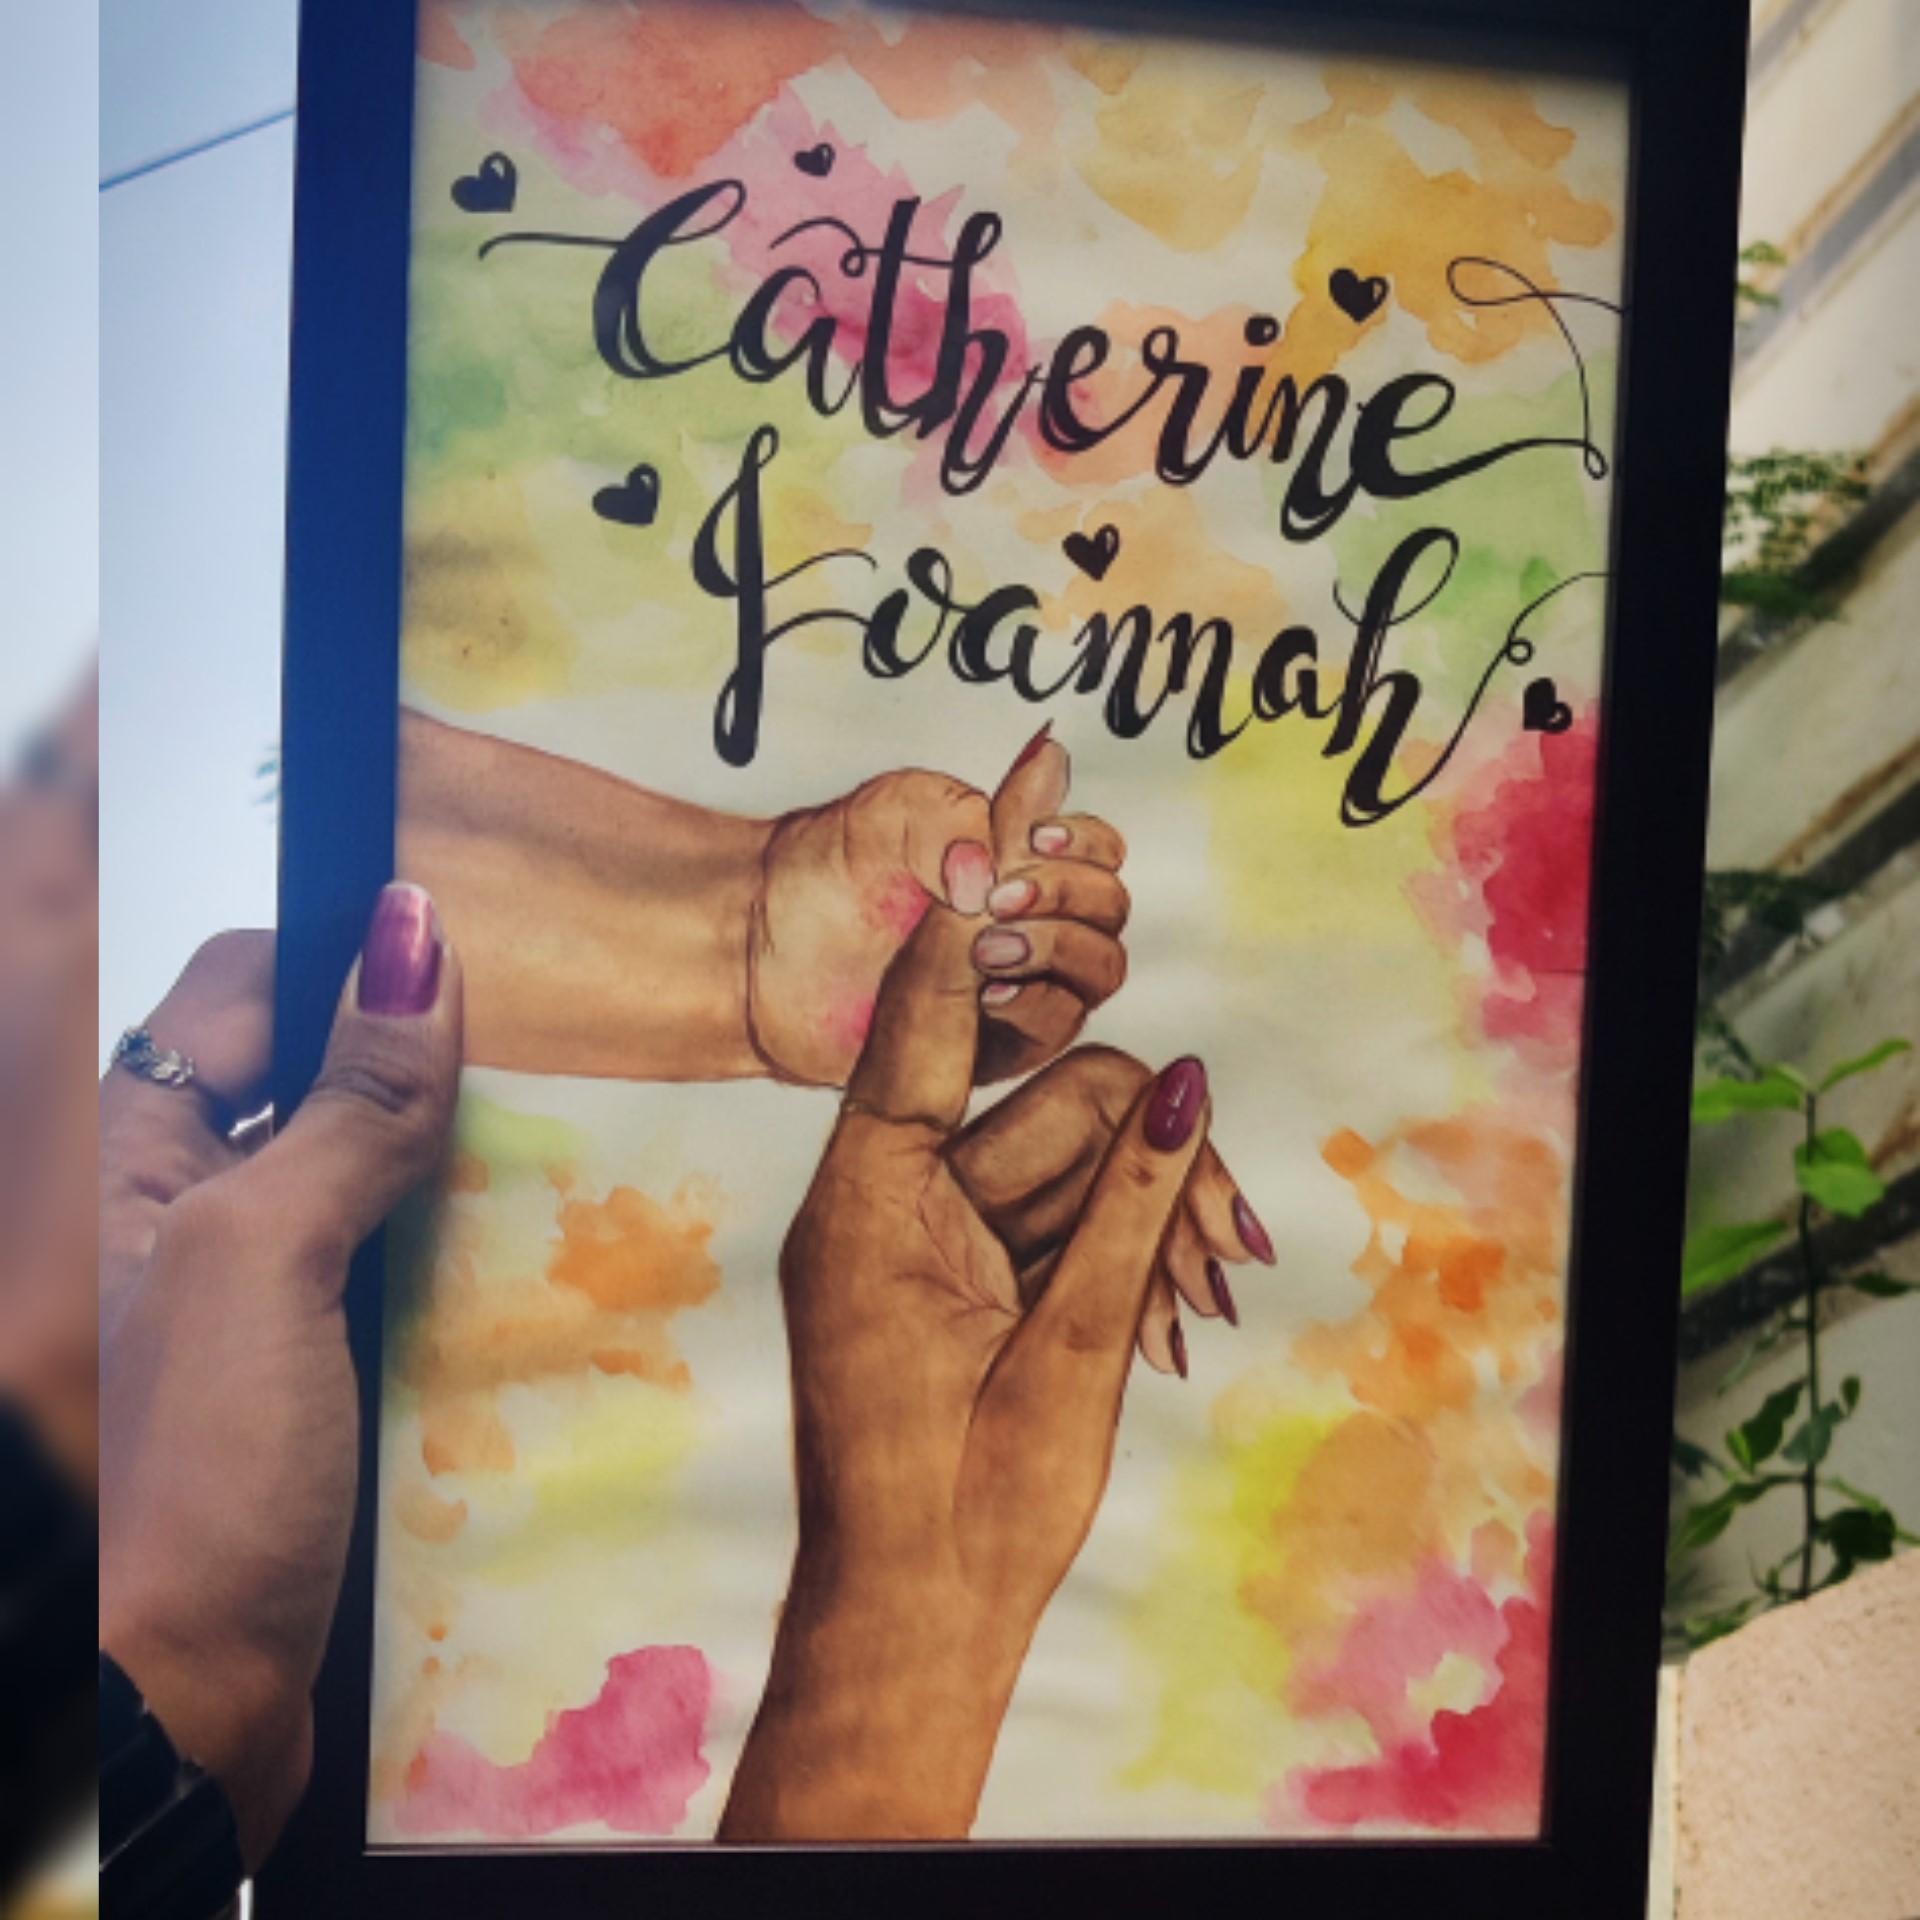 Catherine
Joannah